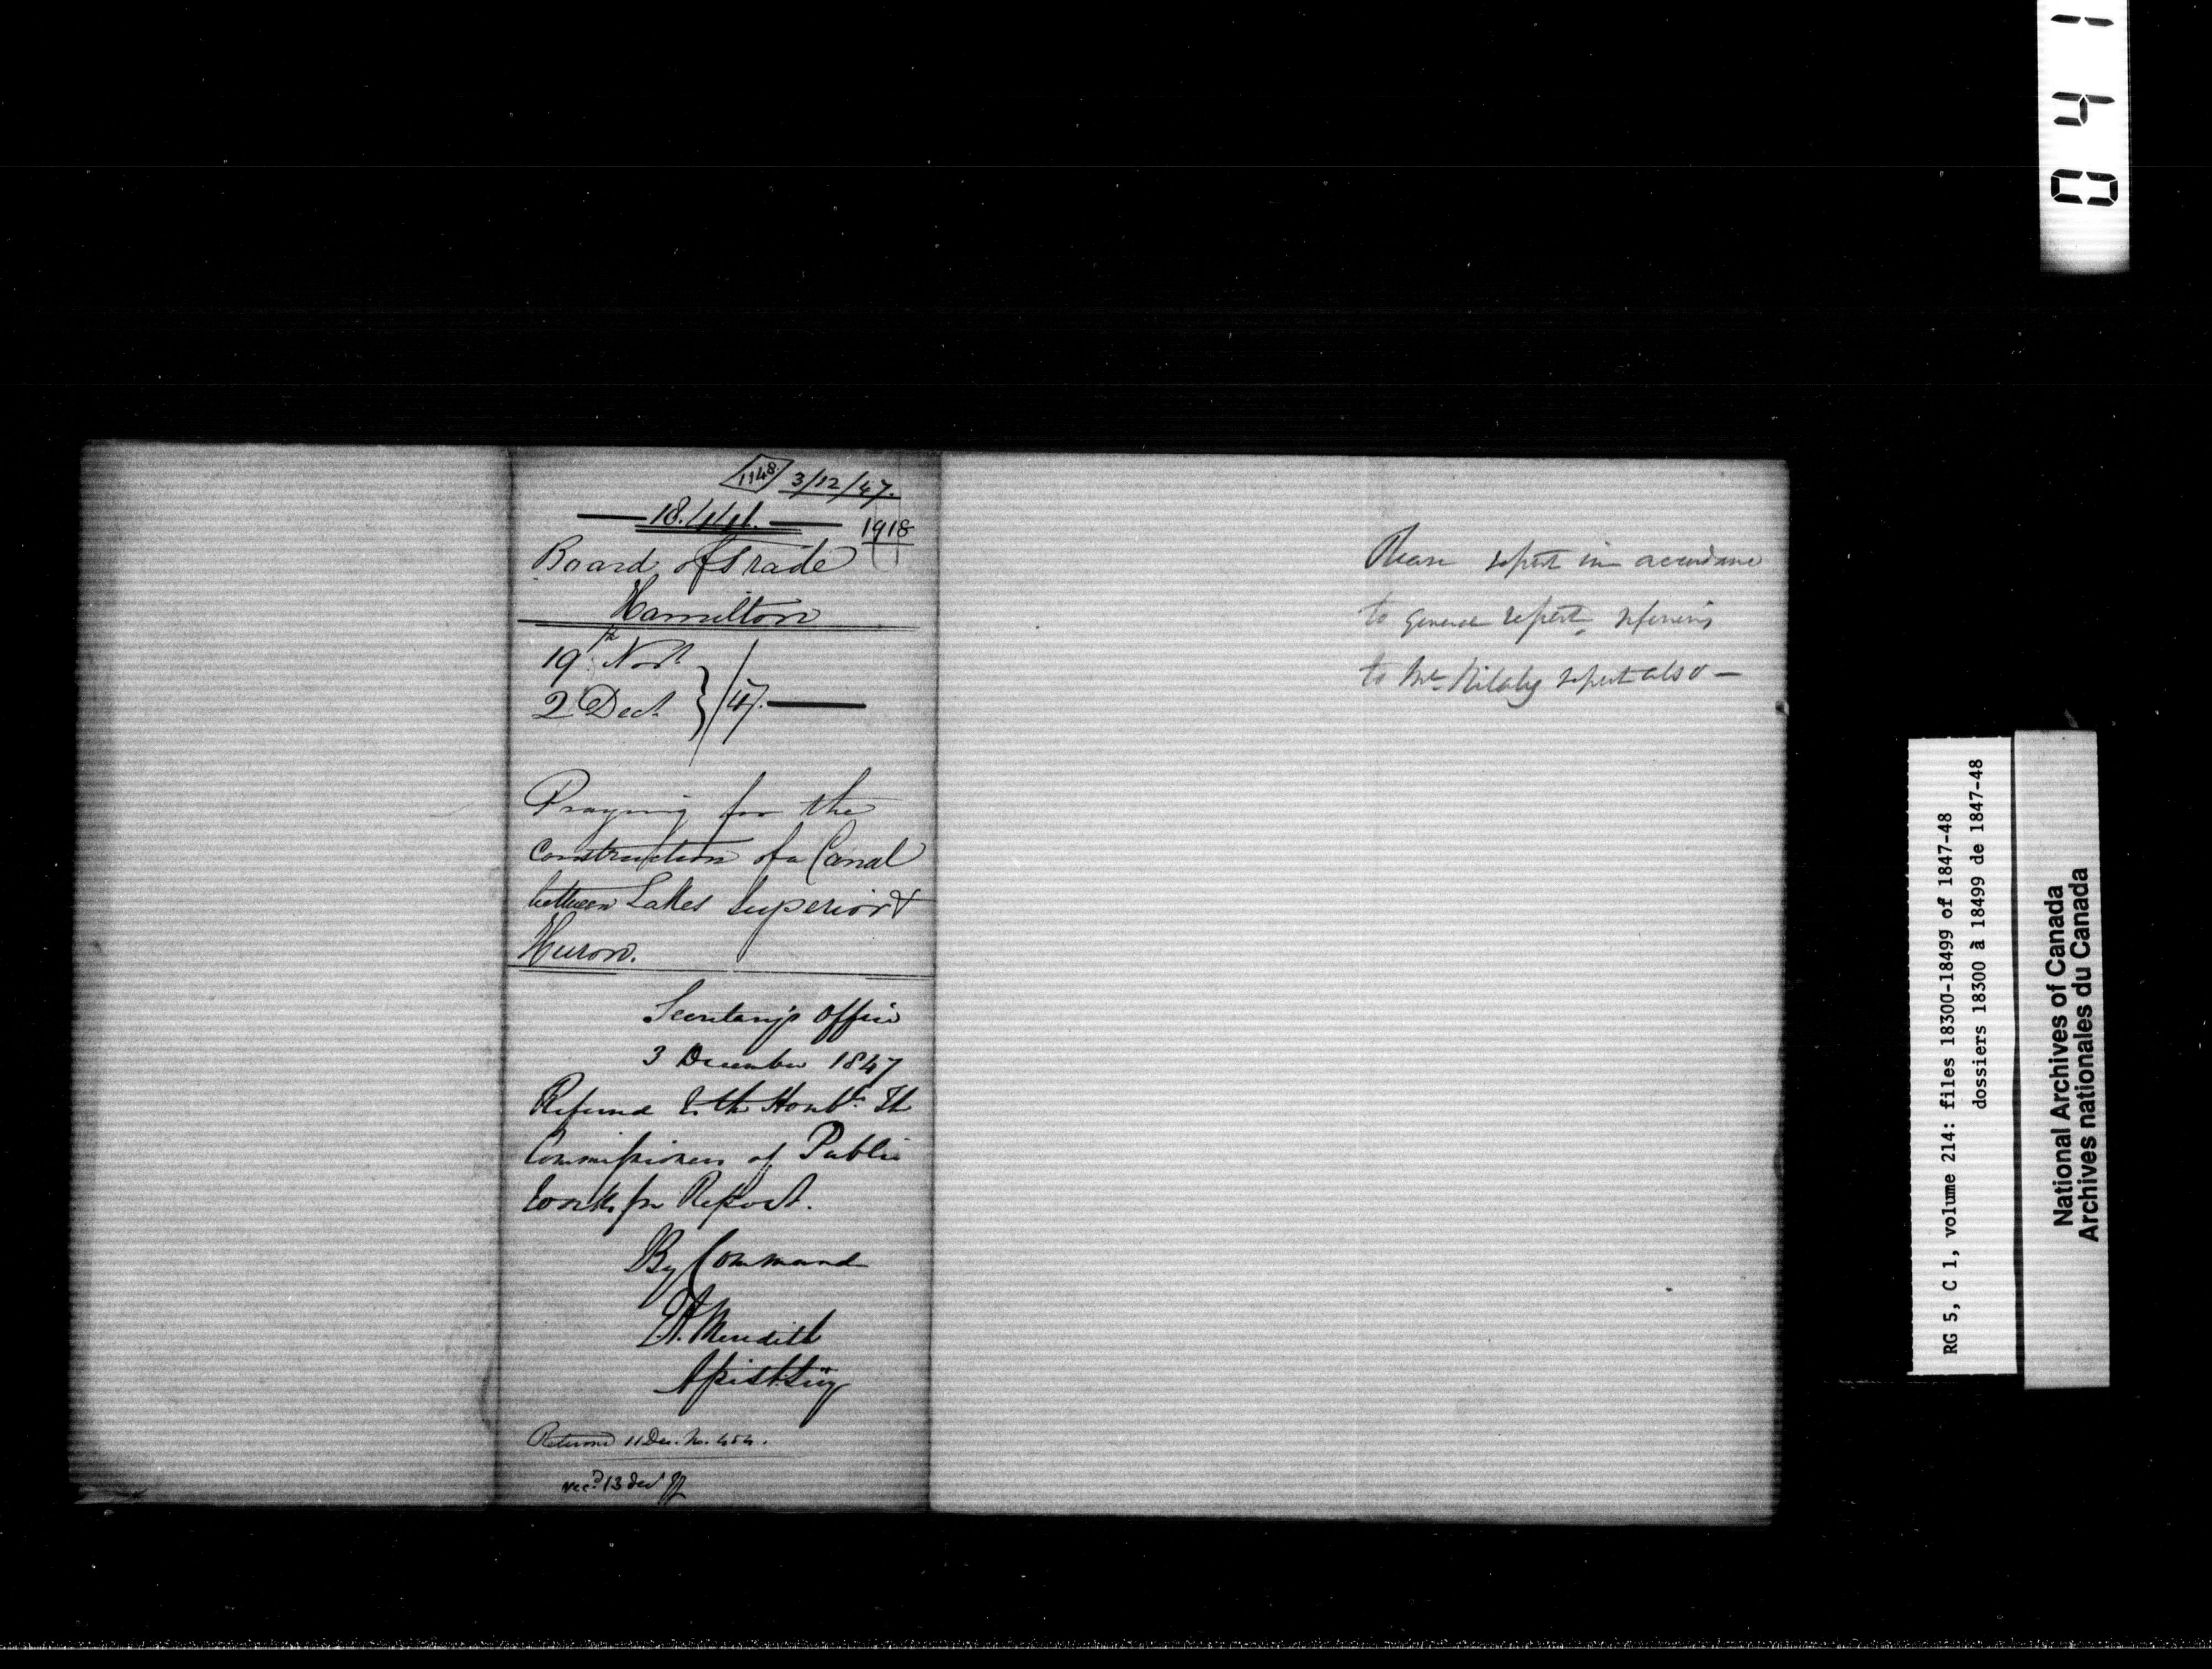 1148 3/12/47.
18.441.
1918
Board of Trade
Hamilton
19th Novr
2 Decr } /47.
Praying for the
Construction of a Canal
between Lakes Superior &
Huron.
Secretary's Office
3 December 1847
Referred to the Honble The
Commissioners of Public
Works for Report.
By Command
E.A. Meredith
Assist. Secy
Returned 11 Dec. No. 454.
Recd 13 Dec
Please report in accordance
to general report, referring
to Mr. Killaly report also —
041
RG 5, C 1, volume 214: files 18300-18499 of 1847-48
dossiers 18300 à 18499 de 1847-48
National Archives of Canada
Archives nationales du Canada